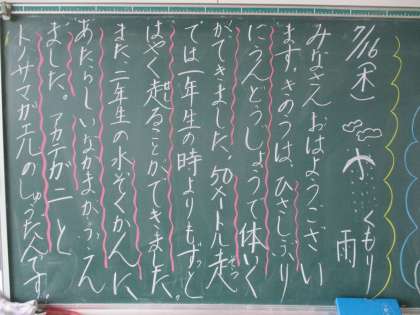 7/16(木) くもり 雨
みなさん おはようござい
ます。きのうは、ひさしぶり
にうんどうじょうで体いく
ができました。50メートル走
では一年生の時よりもずっと
はやく走ることができました。
また、二年生の水ぞくかんに、
あたらしいなかまがふえ
ました。アカテガニと
トノサマガエルの